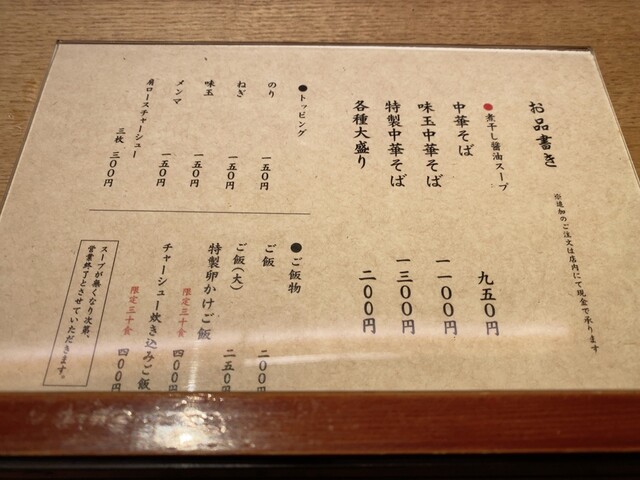 お品書き
※追加のご注文は店内にて現金で承ります
●煮干し醤油スープ
中華そば 九五〇円
味玉中華そば 一一〇〇円
特製中華そば 一三〇〇円
各種大盛り 二〇〇円
●トッピング
のり 一五〇円
ねぎ 一五〇円
味玉 一五〇円
メンマ 一五〇円
肩ロースチャーシュー 三枚 三〇〇円
●ご飯物
ご飯 二〇〇円
ご飯(大) 二五〇円
特製卵かけご飯
限定三十食 四〇〇円
チャーシュー炊き込みご飯
限定三十食 四〇〇円
スープが無くなり次第、
営業終了とさせていただきます。